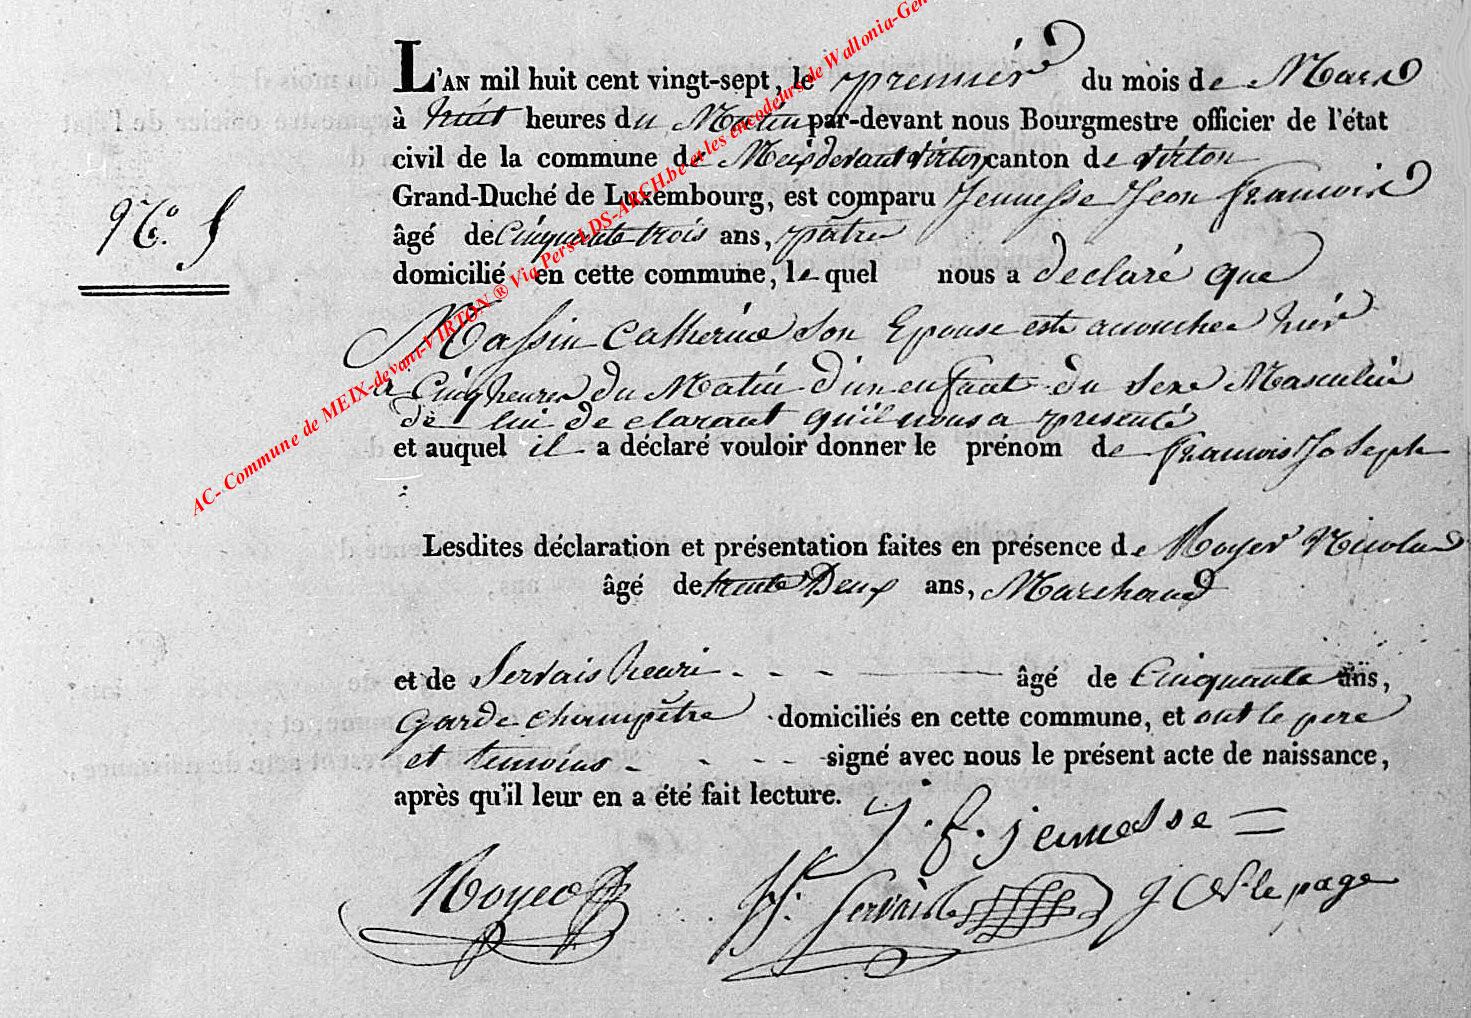 L'AN mil huit cent vingt-sept, le premier du mois de Mars
à huit heures du Matin par-devant nous Bourgmestre officier de l'état
civil de la commune de Meix devant virton canton de virton
Grand-Duché de Luxembourg, est comparu Jeunesse Jean francois
âgé de Cinquante trois ans, pâtre
domicilié en cette commune, le quel nous a declaré que
Massin Catherine Son Epouse est acouchee hier
a Cinq heures du Matin d'un enfant du Sexe Masculin
de lui declarant qu'il nous a presenté
et auquel il a déclaré vouloir donner le prénom de francois Joseph
Lesdites déclaration et présentation faites en présence de Royer Nicolas
âgé de trente Deux ans, Marchand
et de Servais henri âgé de Cinquante ans,
garde champêtre domiciliés en cette commune, et ont le pere
et temoins signé avec nous le présent acte de naissance,
après qu'il leur en a été fait lecture.
J. f. jeunesse
Royer
H. Servais
lepage
No. 5
AC- Commune de MEIX-devant-VIRTON ® Via Pers-LDS-ARCH.be et les encodeurs de Wallonia-Gen